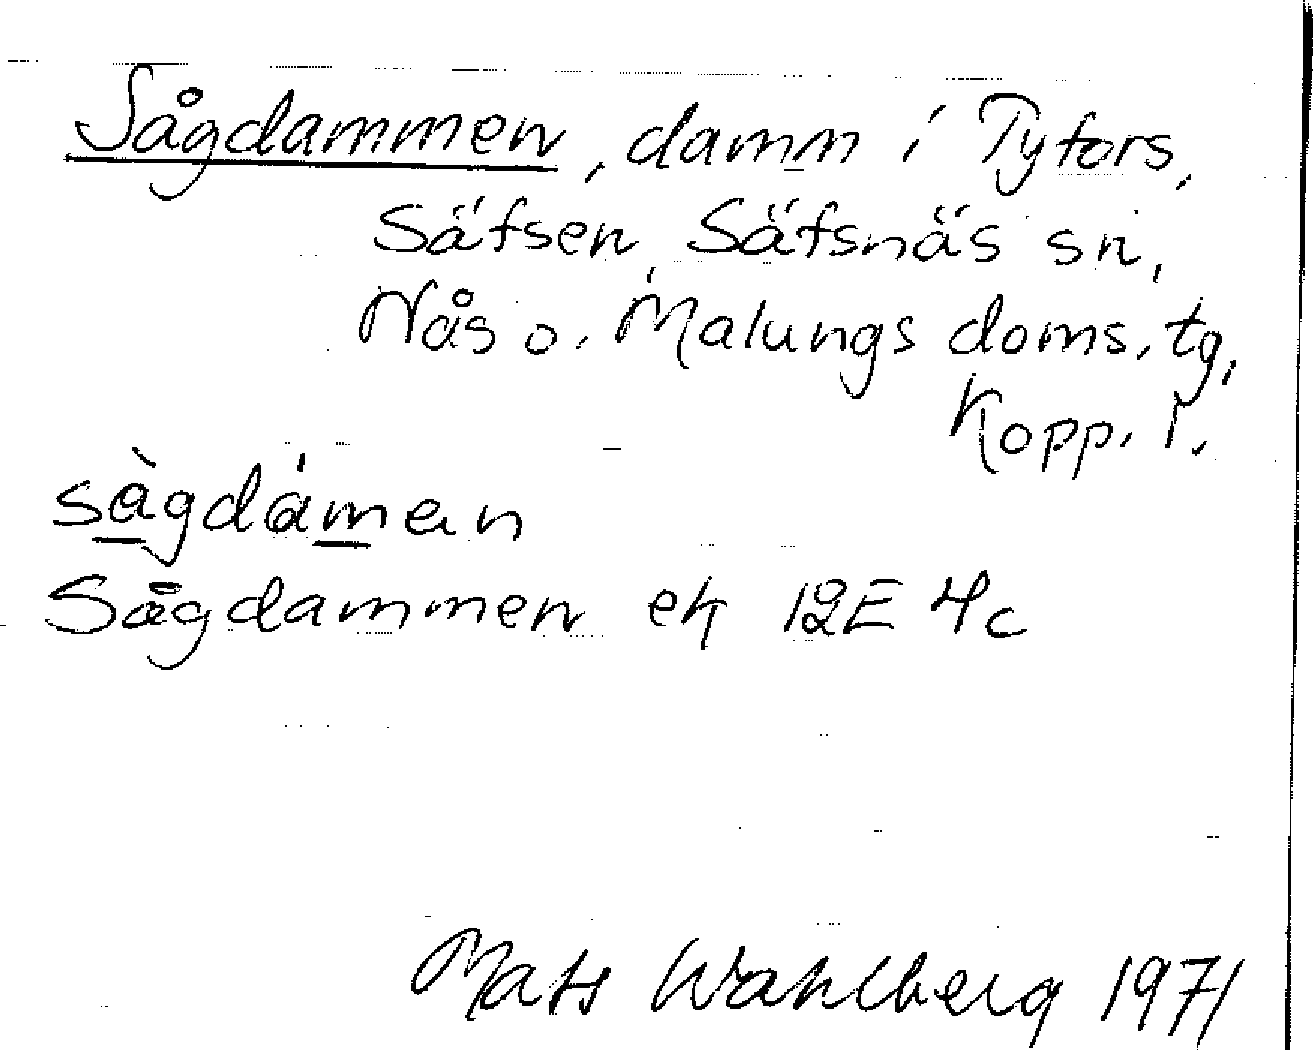 Sågdammen, damm i Tyfors,
Säfsen, Säfsnäs sn,
Nås o. Malungs doms. tg,
Kopp. l.
sàgdámen
Sågdammen ek 12E 4c
Mats Wahlberg 1971